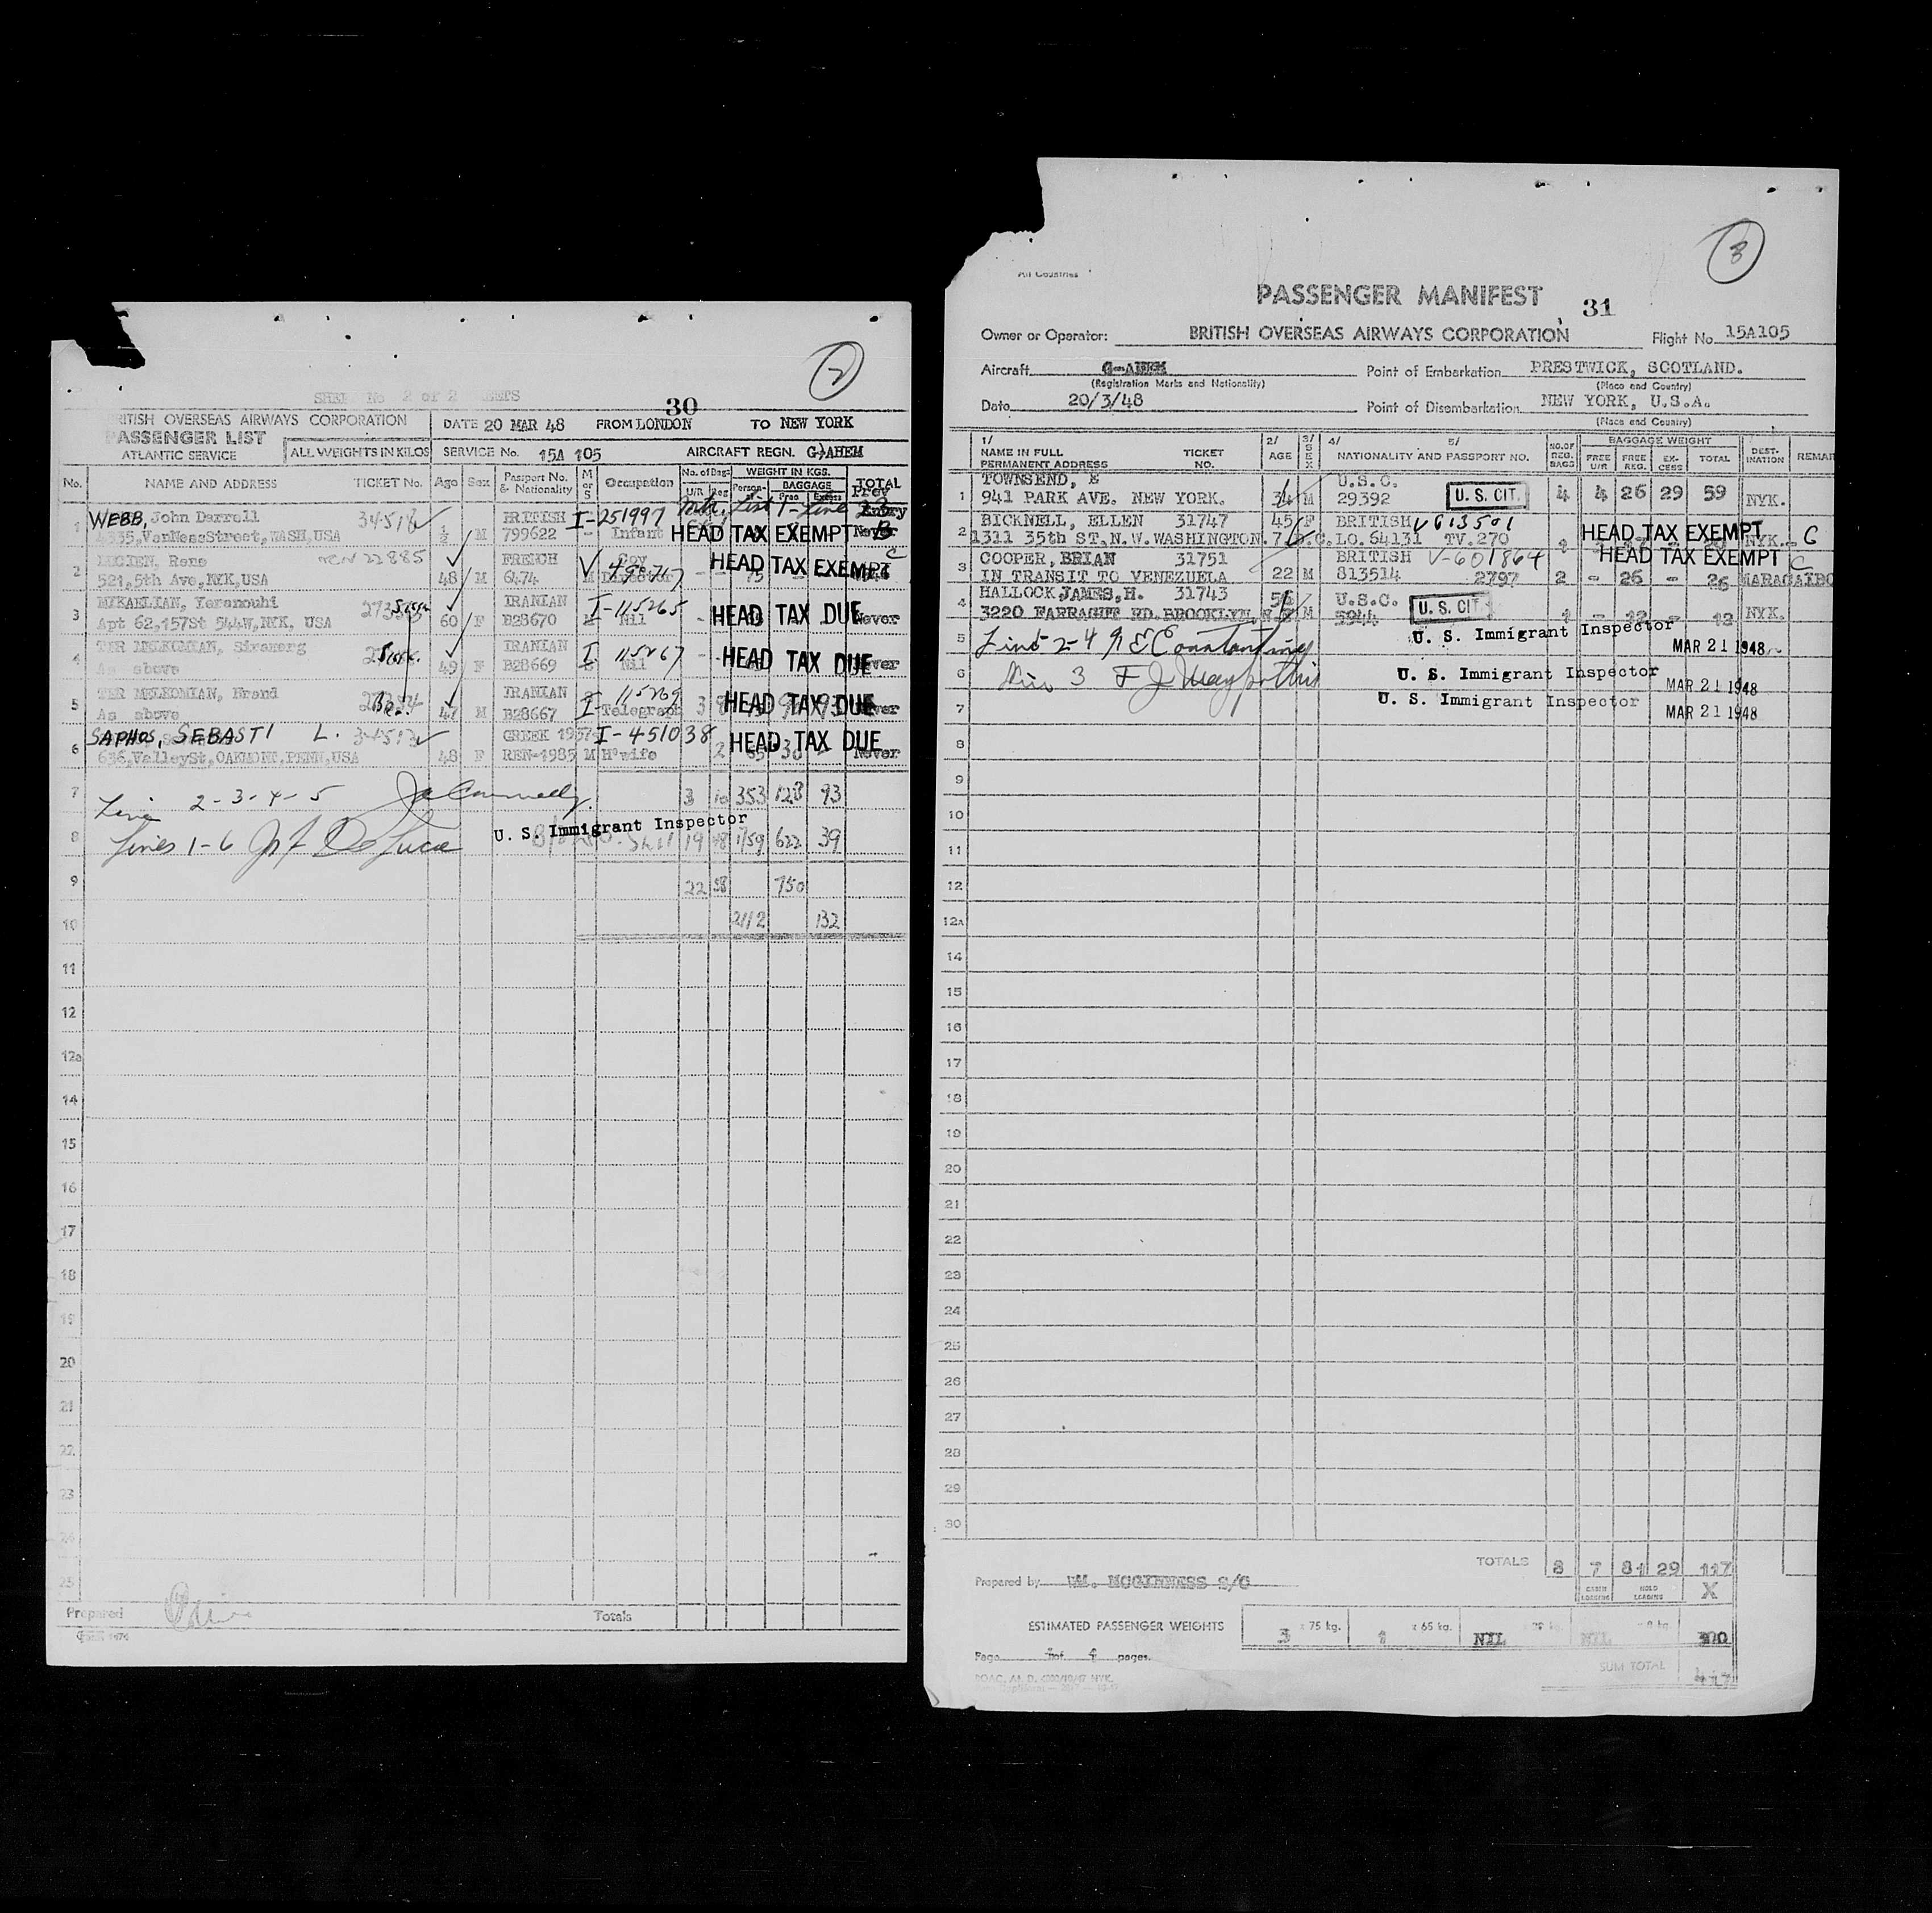 2
SHEET No 2 of 2 SHEETS
30
BRITISH OVERSEAS AIRWAYS CORPORATION
PASSENGER LIST
ATLANTIC SERVICE
ALL WEIGHTS IN KILOS
DATE 20 MAR 48 FROM LONDON TO NEW YORK
SERVICE No. 15A 105 AIRCRAFT REGN. G-AHEM
No. NAME AND ADDRESS TICKET No. Age Sex Passport No. & Nationality M or S Occupation No. of Bags U/R Reg WEIGHT IN KGS. Person BAGGAGE Free Excess TOTAL
Prev
Entry
1 WEBB, John Darrell 34518 BRITISH I-251997
4335, VanNessStreet, WASH, USA ½ M 799622 - Infant HEAD TAX EXEMPT Never
2 LUCIEN, Rene 22885 FRENCH V Gov HEAD TAX EXEMPT C
521, 5th Ave, NYK, USA 48 M 6474 M Director
3 MIKAELIAN, Yeranouhi IRANIAN I-115265
Apt 62, 157St 544W, NYK, USA 60 F B28670 Nil HEAD TAX DUE Never
4 TER MELKOMIAN, IRANIAN I-115267
As above 49 F B28669 Nil HEAD TAX DUE Never
5 TER MELKOMIAN, IRANIAN I-115269
As above 47 M B28667 Telegraph HEAD TAX DUE Never
6 SAPHOS, SEBASTI L. GREEK I-451038 HEAD TAX DUE
636, ValleySt, OAKMONT, PENN, USA 48 F REN-1985 M H'wife 2 65 30 - Never
7 Line 2-3-4-5 3 10 353 128 93
U. S. Immigrant Inspector
8 Lines 1-6 De Luca 19 48 1759 622 39
9 22 58 750
10 2112 132
11
12
12a
14
15
16
17
18
19
20
21
22
23
24
25
Prepared Totals
3
All Countries
PASSENGER MANIFEST 31
Owner or Operator: BRITISH OVERSEAS AIRWAYS CORPORATION Flight No. 15A105
Aircraft G-AHEM Point of Embarkation PRESTWICK, SCOTLAND.
(Registration Marks and Nationality) (Place and Country)
Date 20/3/48 Point of Disembarkation NEW YORK, U.S.A.
(Place and Country)
1/ NAME IN FULL PERMANENT ADDRESS TICKET NO. 2/ AGE 3/ SEX 4/ 5/ NATIONALITY AND PASSPORT NO. NO. OF REG. BAGS BAGGAGE WEIGHT FREE U/R FREE REG. EX-CESS TOTAL DEST-INATION REMAR
1 TOWNSEND, E U.S.C.
941 PARK AVE. NEW YORK. 34 M 29392 U. S. CIT. 4 4 26 29 59 NYK.
2 BICKNELL, ELLEN 31747 45 F BRITISH V613501 HEAD TAX EXEMPT
1311 35th ST, N.W. WASHINGTON. 7. D.C. LO. 64131 TV.270 NYK. C
3 COOPER, BRIAN 31751 BRITISH V-601864 HEAD TAX EXEMPT C
IN TRANSIT TO VENEZUELA 22 M 813514 2797 2 - 26 - 26 MARACAIBO
4 HALLOCK JAMES, H. 31743 56 U.S.C. U. S. CIT.
3220 FARRAGUT RD. BROOKLYN, N.Y. M 5944 1 - 12 - 12 NYK.
5 Line 2-4 U. S. Immigrant Inspector MAR 21 1948
6 Line 3 U. S. Immigrant Inspector MAR 21 1948
7 U. S. Immigrant Inspector MAR 21 1948
8
9
10
11
12
12A
14
15
16
17
18
19
20
21
22
23
24
25
26
27
28
29
30
TOTALS 8 7 81 29 117
Prepared by WM. MCGINNESS S/O CABIN LOADING HOLD LOADING X
ESTIMATED PASSENGER WEIGHTS 3 x 75 kg. 1 x 65 kg. NIL NIL
Page of pages.
SUM TOTAL